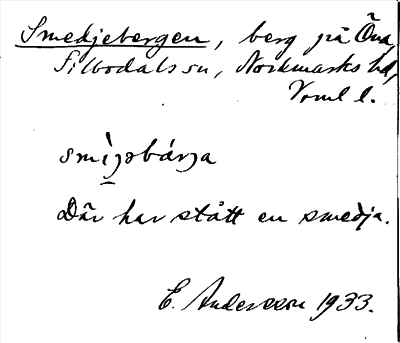 Smedjebergen, berg på Öna,
Silbodals sn, Nordmarks hd,
Vrml l.
smìjəbárja
Där har stått en smedja.
E. Andersson 1933.